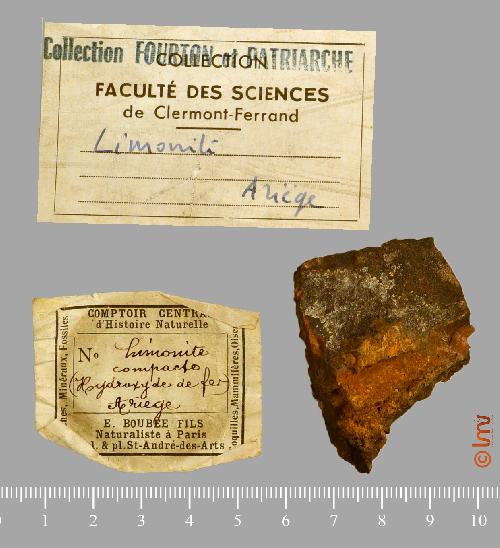 Collection FOURTON et PATRIARCHE
COLLECTION
FACULTÉ DES SCIENCES
de Clermont-Ferrand
Limonite
Ariège
COMPTOIR CENTRA
d'Histoire Naturelle
Minéraux, Fossiles,
No Limonite
compacte
(Hydroxyde de fer)
Ariege
E. BOUBÉE FILS
Naturaliste à Paris
& pl. St-André-des-Arts
oquilles, Mammifères, Oise
© lmv
1 2 3 4 5 6 7 8 9 10